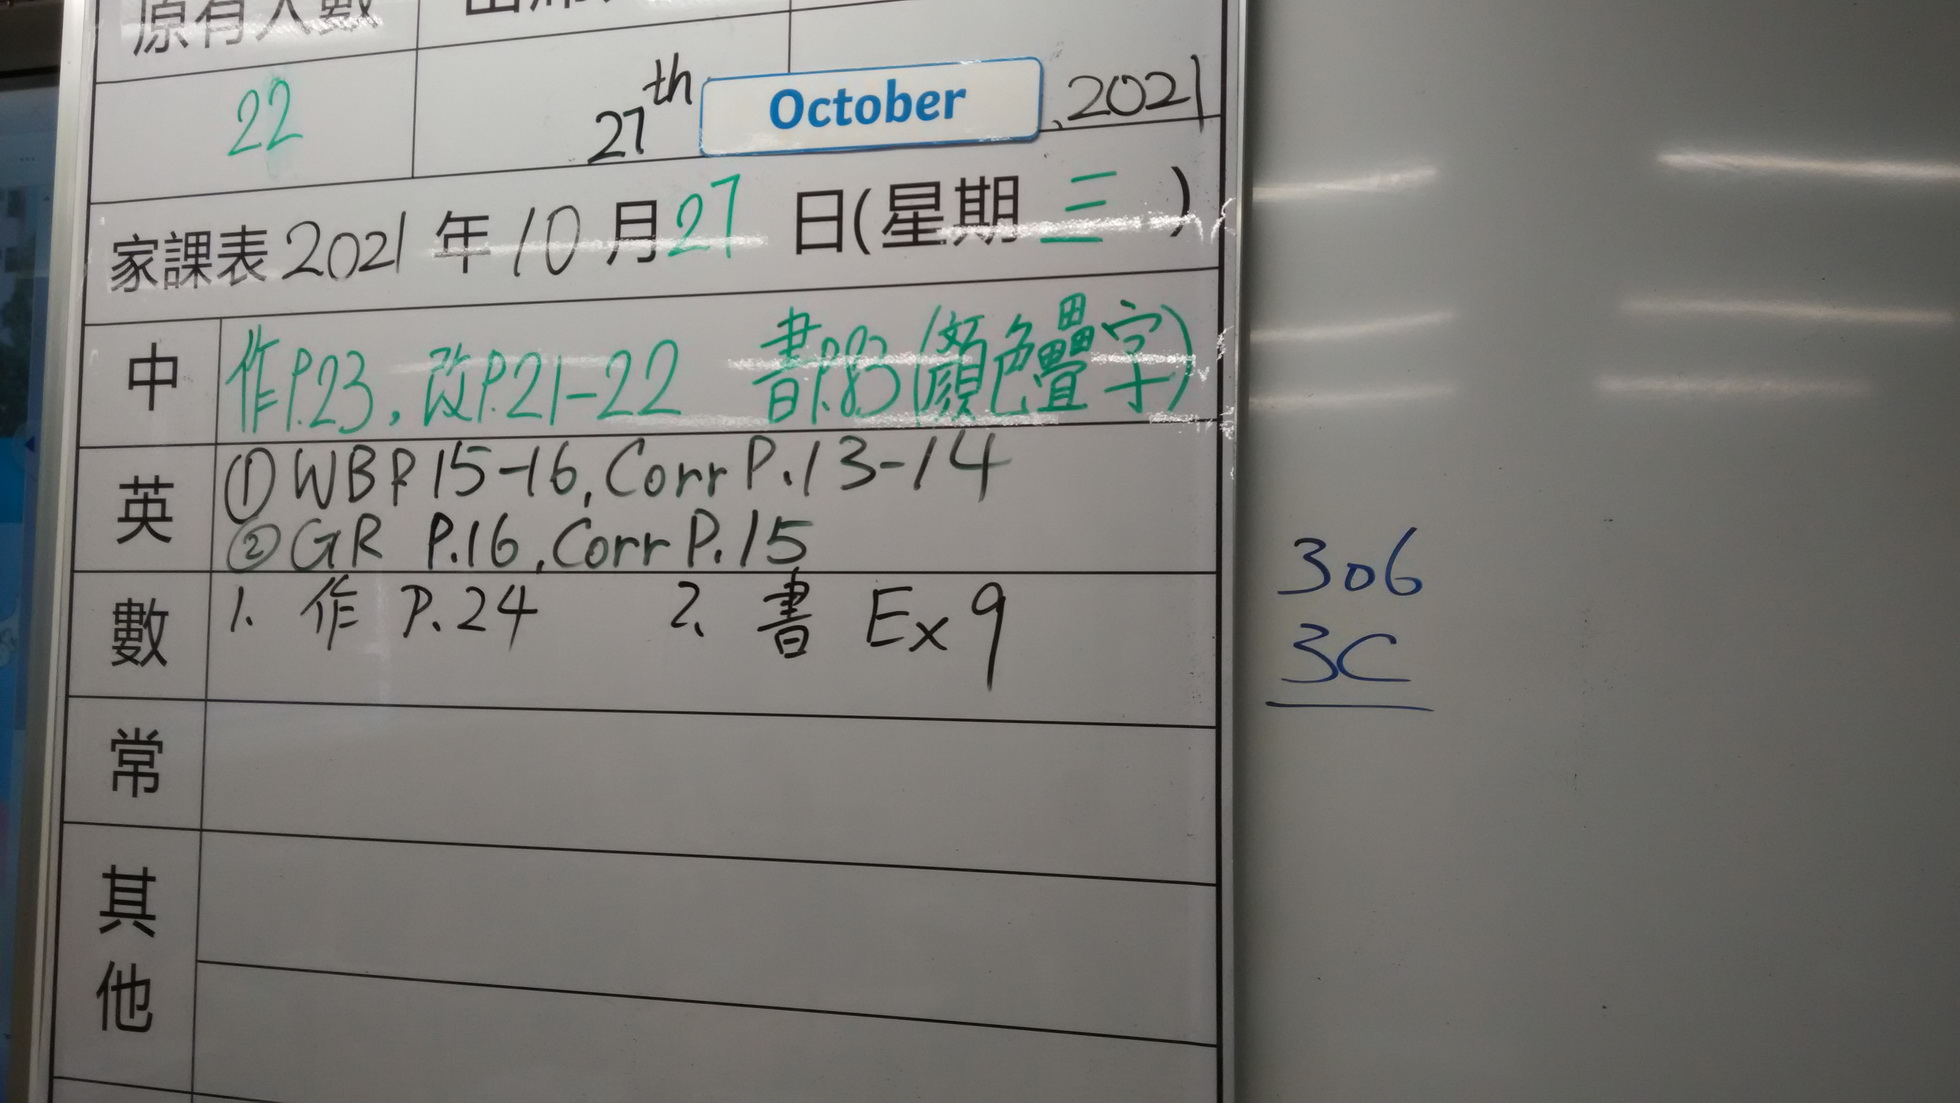 原有人數
22
27th October, 2021
家課表 2021 年 10 月 27 日(星期 三 )
中 作P.23, 改P.21-22 書P.83(顏色疊字)
英 ① WB P.15-16, Corr P.13-14
② GR P.16, Corr P.15
數 1. 作 P.24 2. 書 Ex 9
常
其他
306
3C